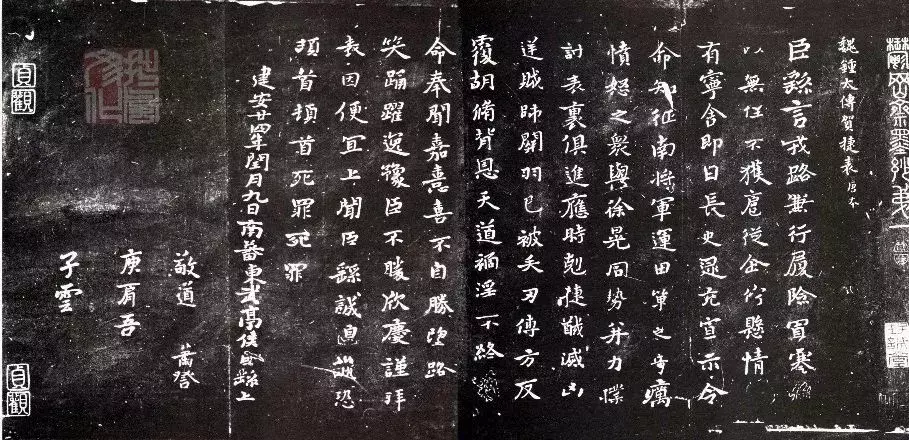 鬱岡齋墨妙弟一
魏鍾太傅賀捷表唐本
臣繇言戎路兼行履險冒寒
以無任不獲扈從企佇懸情
有寧舍即日長史逯充宣示令
命知征南將軍運田單之奇厲
憤怒之衆與徐晃同勢并力撲
討表裏俱進應時剋捷馘滅凶
逆賊帥關羽已被矢刃傅方反
覆胡脩背恩天道禍淫不終
命奉聞嘉憙喜不自勝望路
笑踊躍逸豫臣不勝欣慶謹拜
表因便宜上聞臣繇誠惶誠恐
頓首頓首死罪死罪
建安廿四年閏月九日南蕃東武亭侯臣繇上
敬道 蕭詧
庾肩吾
子雲
貞觀
貞觀